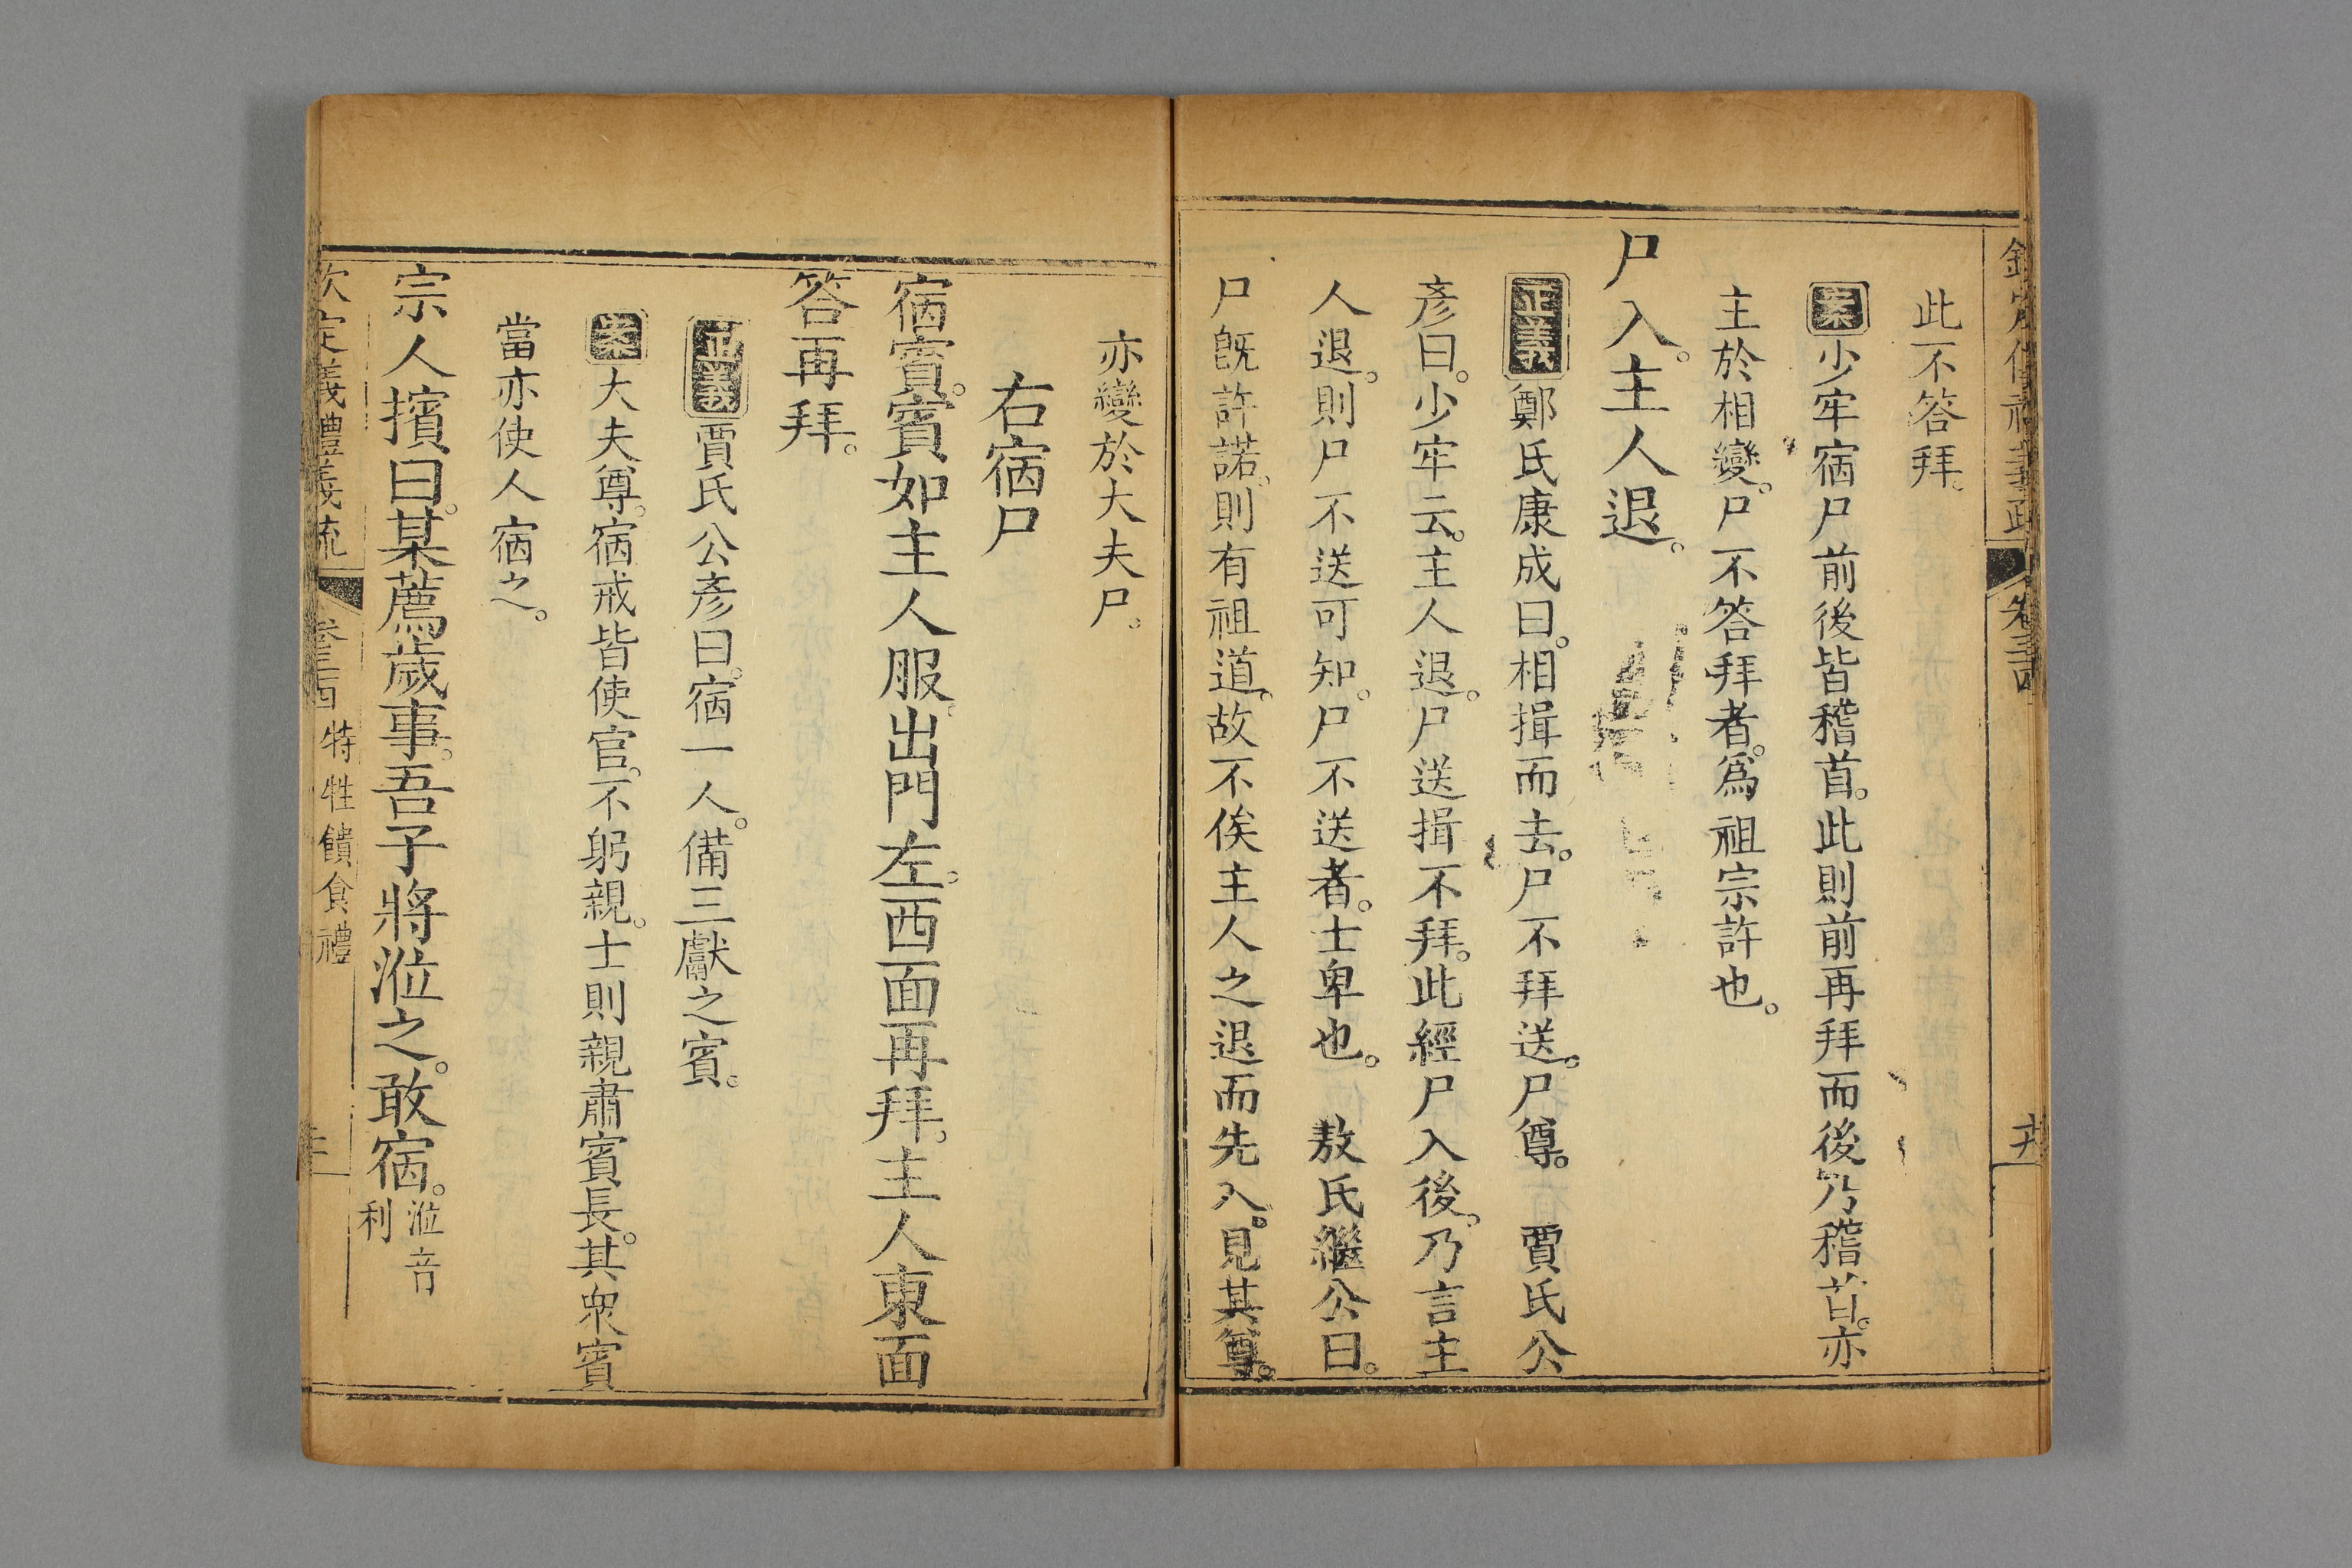 此不答拜。
案少牢宿尸前後皆稽首。此則前再拜而後乃稽首。亦
主於相變。尸不答拜者。爲祖宗許也。
尸入。主人退。
正義鄭氏康成曰。相揖而去。尸不拜送。尸尊。 賈氏公
彥曰。少牢云。主人退。尸送揖不拜。此經尸入後。乃言主
人退。則尸不送可知。尸不送者。士卑也。 敖氏繼公曰。
尸旣許諾。則有祖道。故不俟主人之退而先入。見其尊。
亦變於大夫尸。
右宿尸
宿賓。賓如主人服。出門左。西面再拜。主人東面
答再拜。
正義賈氏公彥曰。宿一人。備三獻之賓。
案大夫尊。宿戒皆使官。不躬親。士則親肅賓長。其衆賓
當亦使人宿之。
宗人擯曰。某薦歲事。吾子將涖之。敢宿。涖音
利
欽定義禮義疏 卷三四 特牲饋食禮